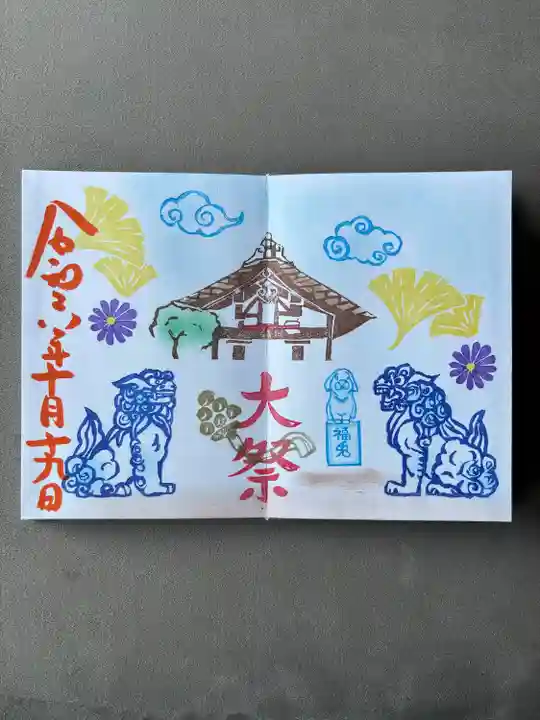 令和六年十月十九日
大祭
福兎